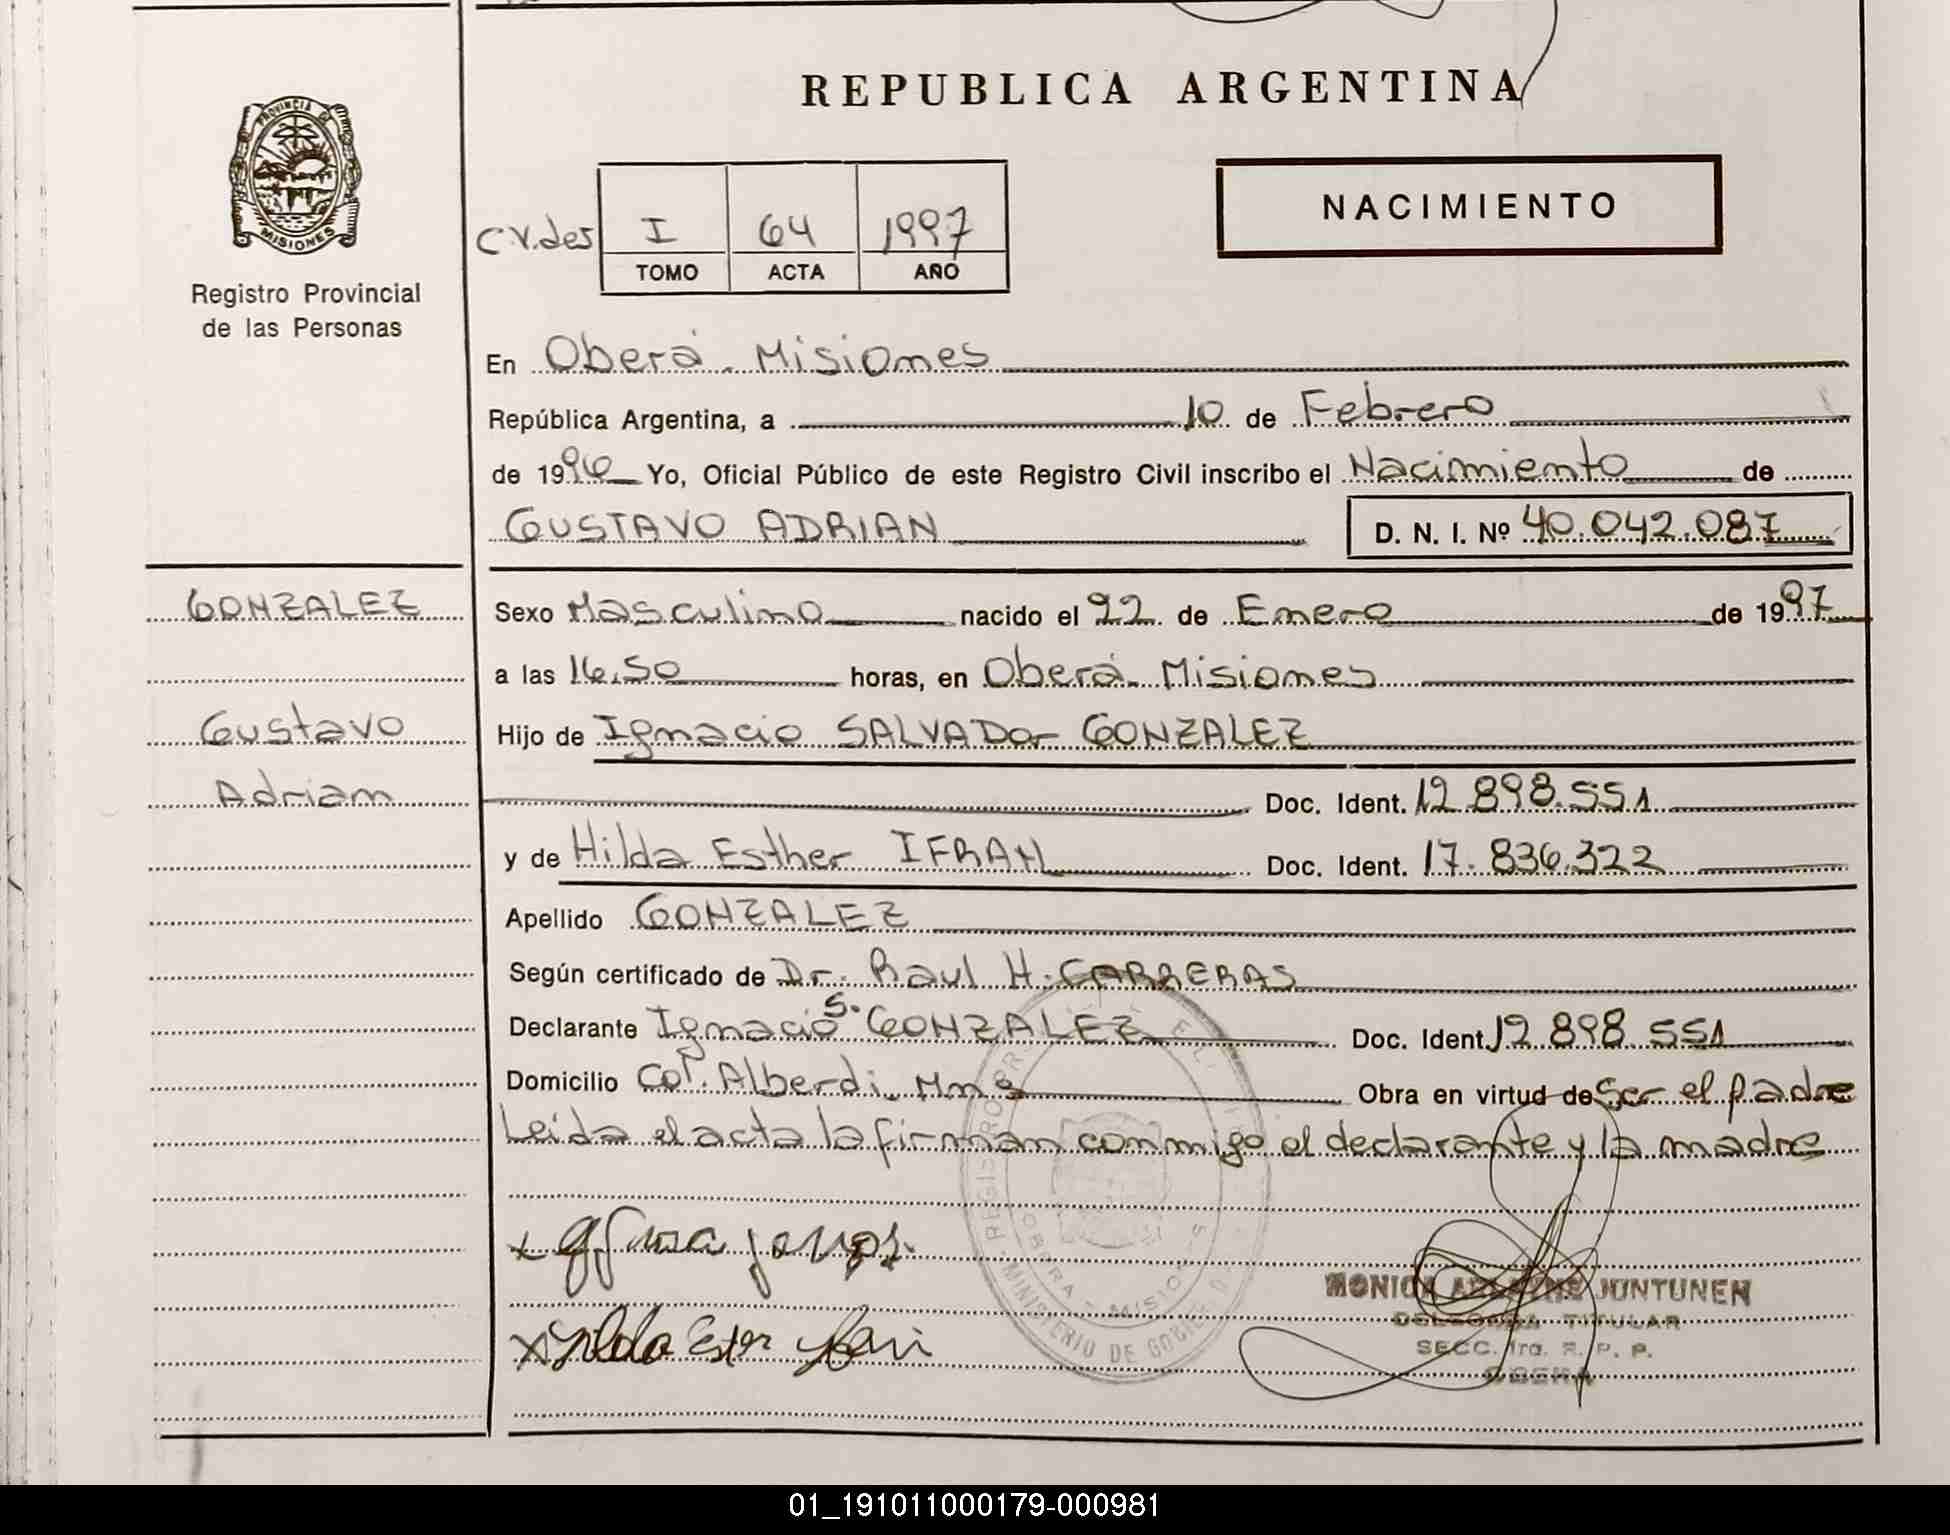 REPUBLICA ARGENTINA
PROVINCIA DE
MISIONES
Registro Provincial
de las Personas
C.V.des
I 64 1997
TOMO ACTA AÑO
NACIMIENTO
En Oberá - Misiones
República Argentina, a 10 de Febrero
de 1996 Yo, Oficial Público de este Registro Civil inscribo el Nacimiento de
GUSTAVO ADRIAN D. N. I. Nº 40.042.087
GONZALEZ
Gustavo
Adrian
Sexo Masculino nacido el 22 de Enero de 1997
a las 16.50 horas, en Oberá - Misiones
Hijo de Ignacio SALVADor GONZALEZ
Doc. Ident. 12.898.551
y de Hilda Esther IFRAN Doc. Ident. 17.836.322
Apellido GONZALEZ
Según certificado de Dr. Raul H. CARRERAS
Declarante Ignacio S. GONZALEZ Doc. Ident. 12.898.551
Domicilio Col. Alberdi - Mnes Obra en virtud de ser el padre
Leida el acta la firman conmigo el declarante y la madre
Hilda Ester
MINISTERIO DE GOBIERNO
OBERA - MISIONES
MONICA JUNTUNEN
DELEGADA TITULAR
SECC. 1ra. R. P. P.
OBERA
01_191011000179-000981